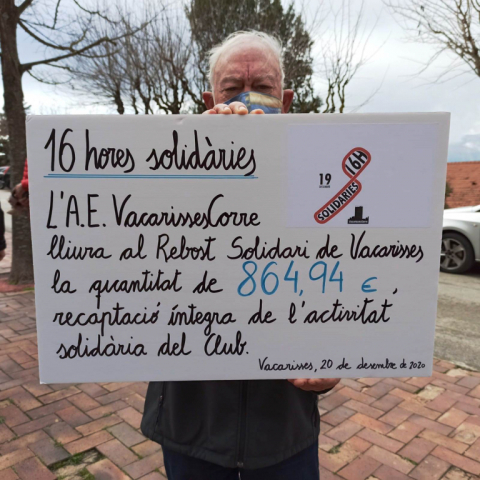 16 hores solidàries
19
SOLIDÀRIES 16H
L'A.E. VacarissesCorre
lliura al Rebost Solidari de Vacarisses
la quantitat de 864,94 €,
recaptació íntegra de l'activitat
solidària del Club.
Vacarisses, 20 de desembre de 2020